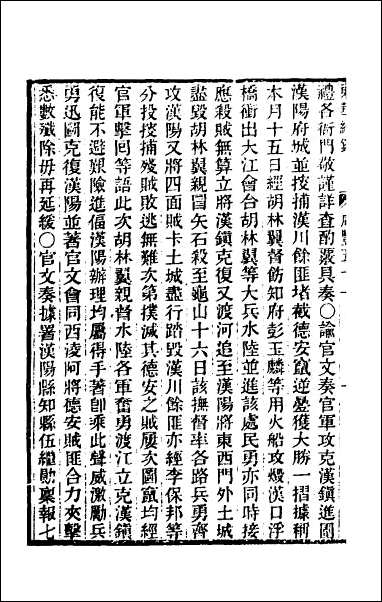 禮各衙門敬謹詳查酌議具奏〇諭官文奏官軍攻克漢鎮進圍
漢陽府城並搜捕漢川餘匪堵截德安竄逆疊獲大勝一摺據稱
本月十五日經胡林翼督飭知府彭玉麟等用火船攻燬漢口浮
橋衝出大江會台胡林翼等大兵水陸並進該處民勇亦同時接
應殺賊無算立將漢鎮克復又渡河追至漢陽將東西門外土城
盡毀胡林翼親冒矢石殺至龜山十六日該撫督率各路兵勇齊
攻漢陽又將四面賊卡土城盡行踏毀漢川餘匪亦經李保邦等
分投搜捕殘賊敗逃無難次第撲滅其德安之賊屢次圖竄均經
官軍擊回等語此次胡林翼親督水陸各軍奮勇渡江立克漢鎮
復能不避艱險進偪漢陽辦理均屬得手著卽乘此聲威激勵兵
勇迅圖克復漢陽並著官文會同西凌阿將德安賊匪合力夾擊
悉數殲除毋再延緩〇官文奏據署漢陽縣知縣伍繼勛稟報七